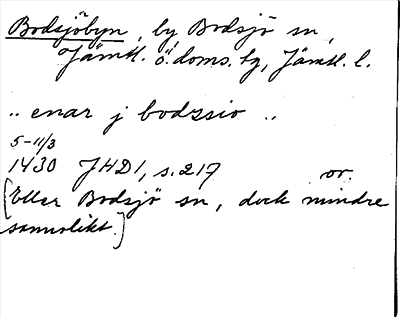 Bodsjöbyn, by Bodsjö sn,
Jämtl. ö. doms. tg, Jämtl. l.
.. enar j bodzsio ..
5-11/3
1430 JHD1, s. 217 or.
[Eller Bodsjö sn, dock mindre
sannolikt.]